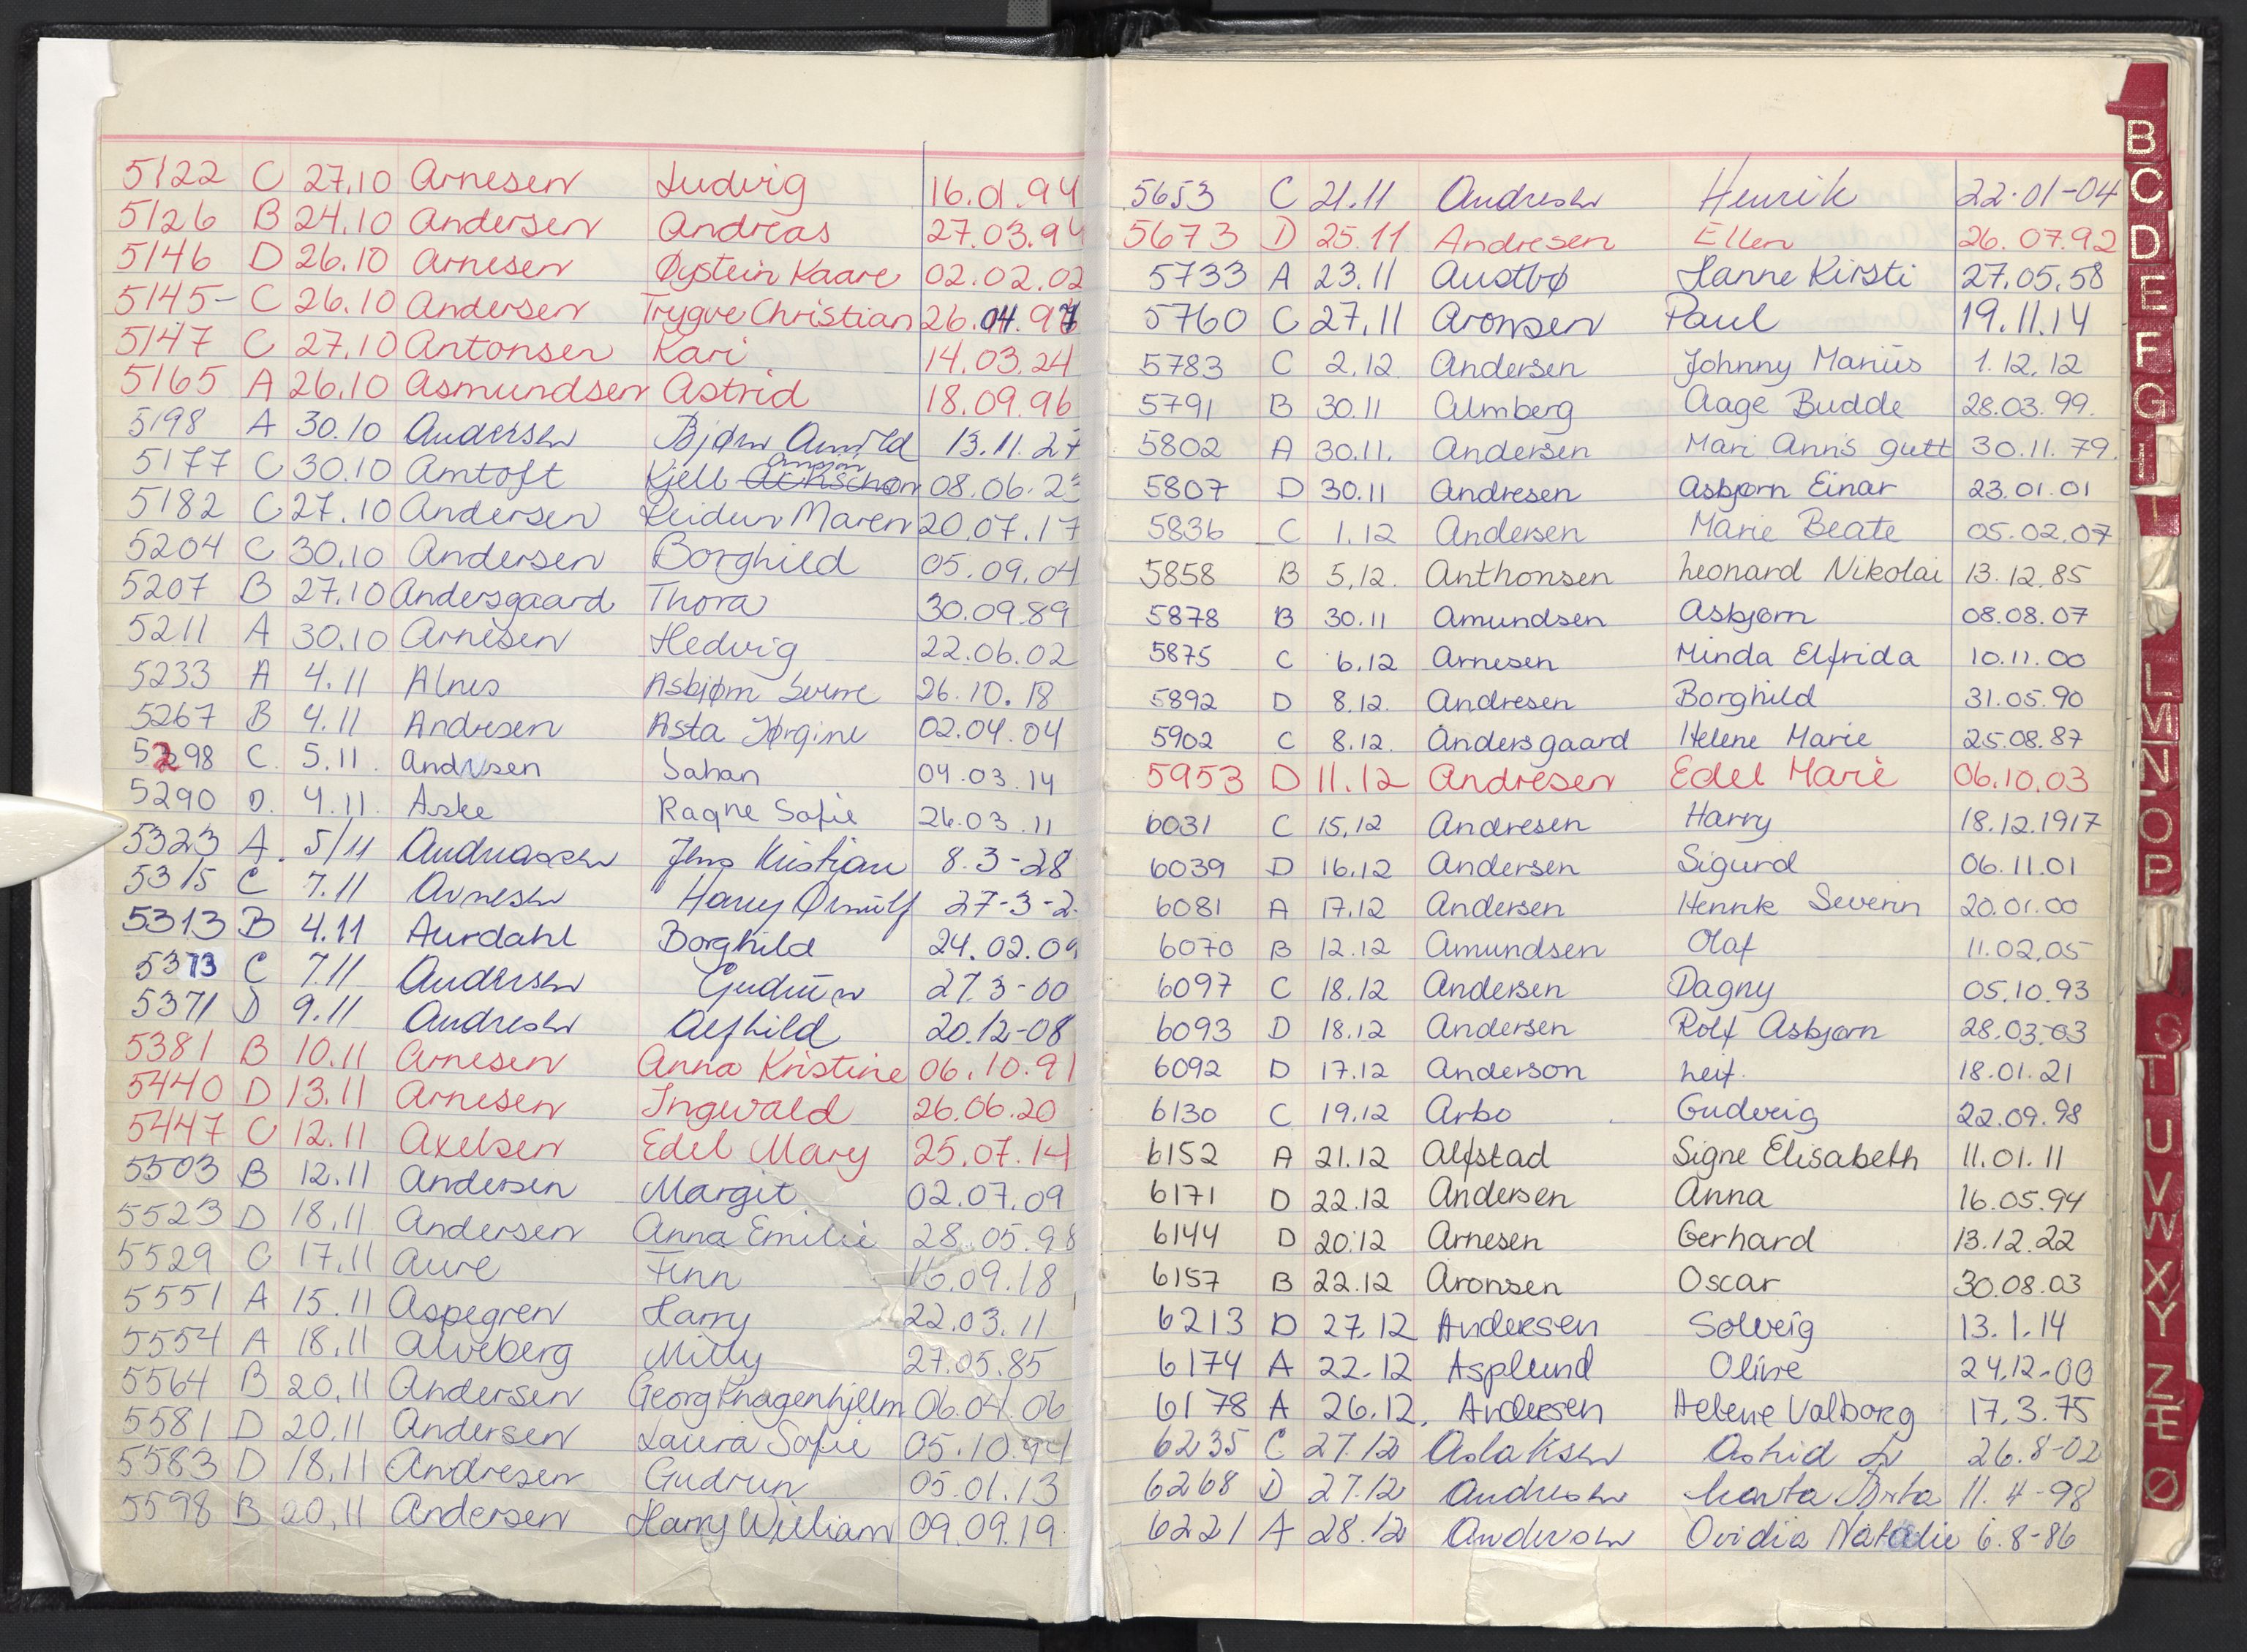 5122 C 27.10 Arnesen Ludvig 16.01.94
5126 B 24.10 Andersen Andreas 27.03.94
5146 D 26.10 Arnesen Øystein Kaare 02.02.02
5145- C 26.10 Andersen Trygve Christian 26.04.97
5147 C 27.10 Antonsen Kari 14.03.24
5165 A 26.10 Asmundsen Astrid 18.09.96
5198 A 30.10 Andersen Bjørn Arnold 13.11.27
5177 C 30.10 Amtoft Kjell 08.06.2
5182 C 27.10 Andersen Reidun Maren 20.07.17
5204 C 30.10 Andersen Borghild 05.09.04
5207 B 27.10 Andersgaard Thora 30.09.89
5211 A 30.10 Arnesen Hedvig 22.06.02
5233 A 4.11 Alnes Asbjørn Sverre 26.10.18
5267 B 4.11 Andresen Asta Jørgine 02.04.04
5298 C 5.11 Andresen Johan 04.03.14
5290 D. 4.11 Aske Ragne Sofie 26.03.11
5323 A. 5/11 Andreassen Jens Kristian 8.3-28
5315 C 7.11 Arnesen Harry Ørnulf 27-3-2
5313 B 4.11 Aurdahl Borghild 24.02.09
5373 C 7.11 Andersen Gudrun 27.3-00
5371 D 9.11 Andresen Alfhild 20.12-08
5381 B 10.11 Arnesen Anna Kristine 06.10.91
5440 D 13.11 Arnesen Ingvald 26.06.20
5447 C 12.11 Axelsen Edel Mary 25.07.14
5503 B 12.11 Andersen Margit 02.07.09
5523 D 18.11 Andersen Anna Emilie 28.05.98
5529 C 17.11 Aure Finn 16.09.18
5551 A 15.11 Aspegren Harry 22.03.11
5554 A 18.11 Alveberg Milly 27.05.85
5564 B 20.11 Andersen Georg 06.04.06
5581 D 20.11 Andersen Laura Sofie 05.10.94
5583 D 18.11 Andresen Gudrun 05.01.13
5598 B 20.11 Andersen Harry William 09.09.19
5653 C 21.11 Andresen Henrik 22.01-04
5673 D 25.11 Andresen Ellen 26.07.92
5733 A 23.11 Austbø Hanne Kirsti 27.05.58
5760 C 27.11 Aronsen Paul 19.11.14
5783 C 2.12 Andersen Johnny Marius 1.12.12
5791 B 30.11 Almberg Aage Budde 28.03.99.
5802 A 30.11. Andersen Mari Ann's gutt 30.11.79.
5807 D 30.11 Andresen Asbjørn Einar 23.01.01
5836 C 1.12 Andersen Marie Beate 05.02.07
5858 B 5.12. Anthonsen Leonard Nikolai 13.12.85
5878 B 30.11 Amundsen Asbjørn 08.08.07
5875 C 6.12 Arnesen Minda Elfrida 10.11.00
5892 D 8.12. Andresen Borghild 31.05.90
5902 C 8.12. Andersgaard Helene Marie 25.08.87
5953 D 11.12 Andresen Edel Marie 06.10.03
6031 C 15.12 Andresen Harry 18.12.1917
6039 D 16.12 Andersen Sigurd 06.11.01
6081 A 17.12 Andersen Henrik Severin 20.01.00
6070 B 12.12 Amundsen Olaf 11.02.05
6097 C 18.12 Andersen Dagny 05.10.93
6093 D 18.12 Andersen Rolf Asbjørn 28.03.03
6092 D 17.12 Anderson Leif. 18.01.21
6130 C 19.12 Arbo Gudveig 22.09.98
6152 A 21.12 Alfstad Signe Elisabeth 11.01.11
6171 D 22.12 Andersen Anna 16.05.94
6144 D 20.12 Arnesen Gerhard 13.12.22
6157 B 22.12 Aronsen Oscar 30.08.03
6213 D 27.12 Andersen Solveig 13.1.14
6174 A 22.12 Asplund Oline 24.12-00
6178 A 26.12. Andersen Helene Valborg 17.3.75
6235 C 27.12 Aslaksen Astrid 26.8-02
6268 D 27.12 Andresen 11.4-98
6221 A 28.12 Anderson Ovidia Natalie 6.8-86
B
C
D
E
F
G
H
I
L
M
N
O
P
S
T
U
V
W
X
Y
Z
Æ
Ø